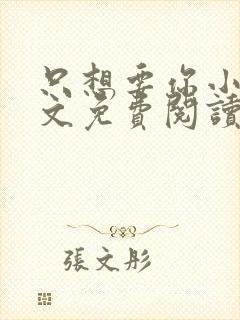 只想要你小
文免費閱讀
張文彤